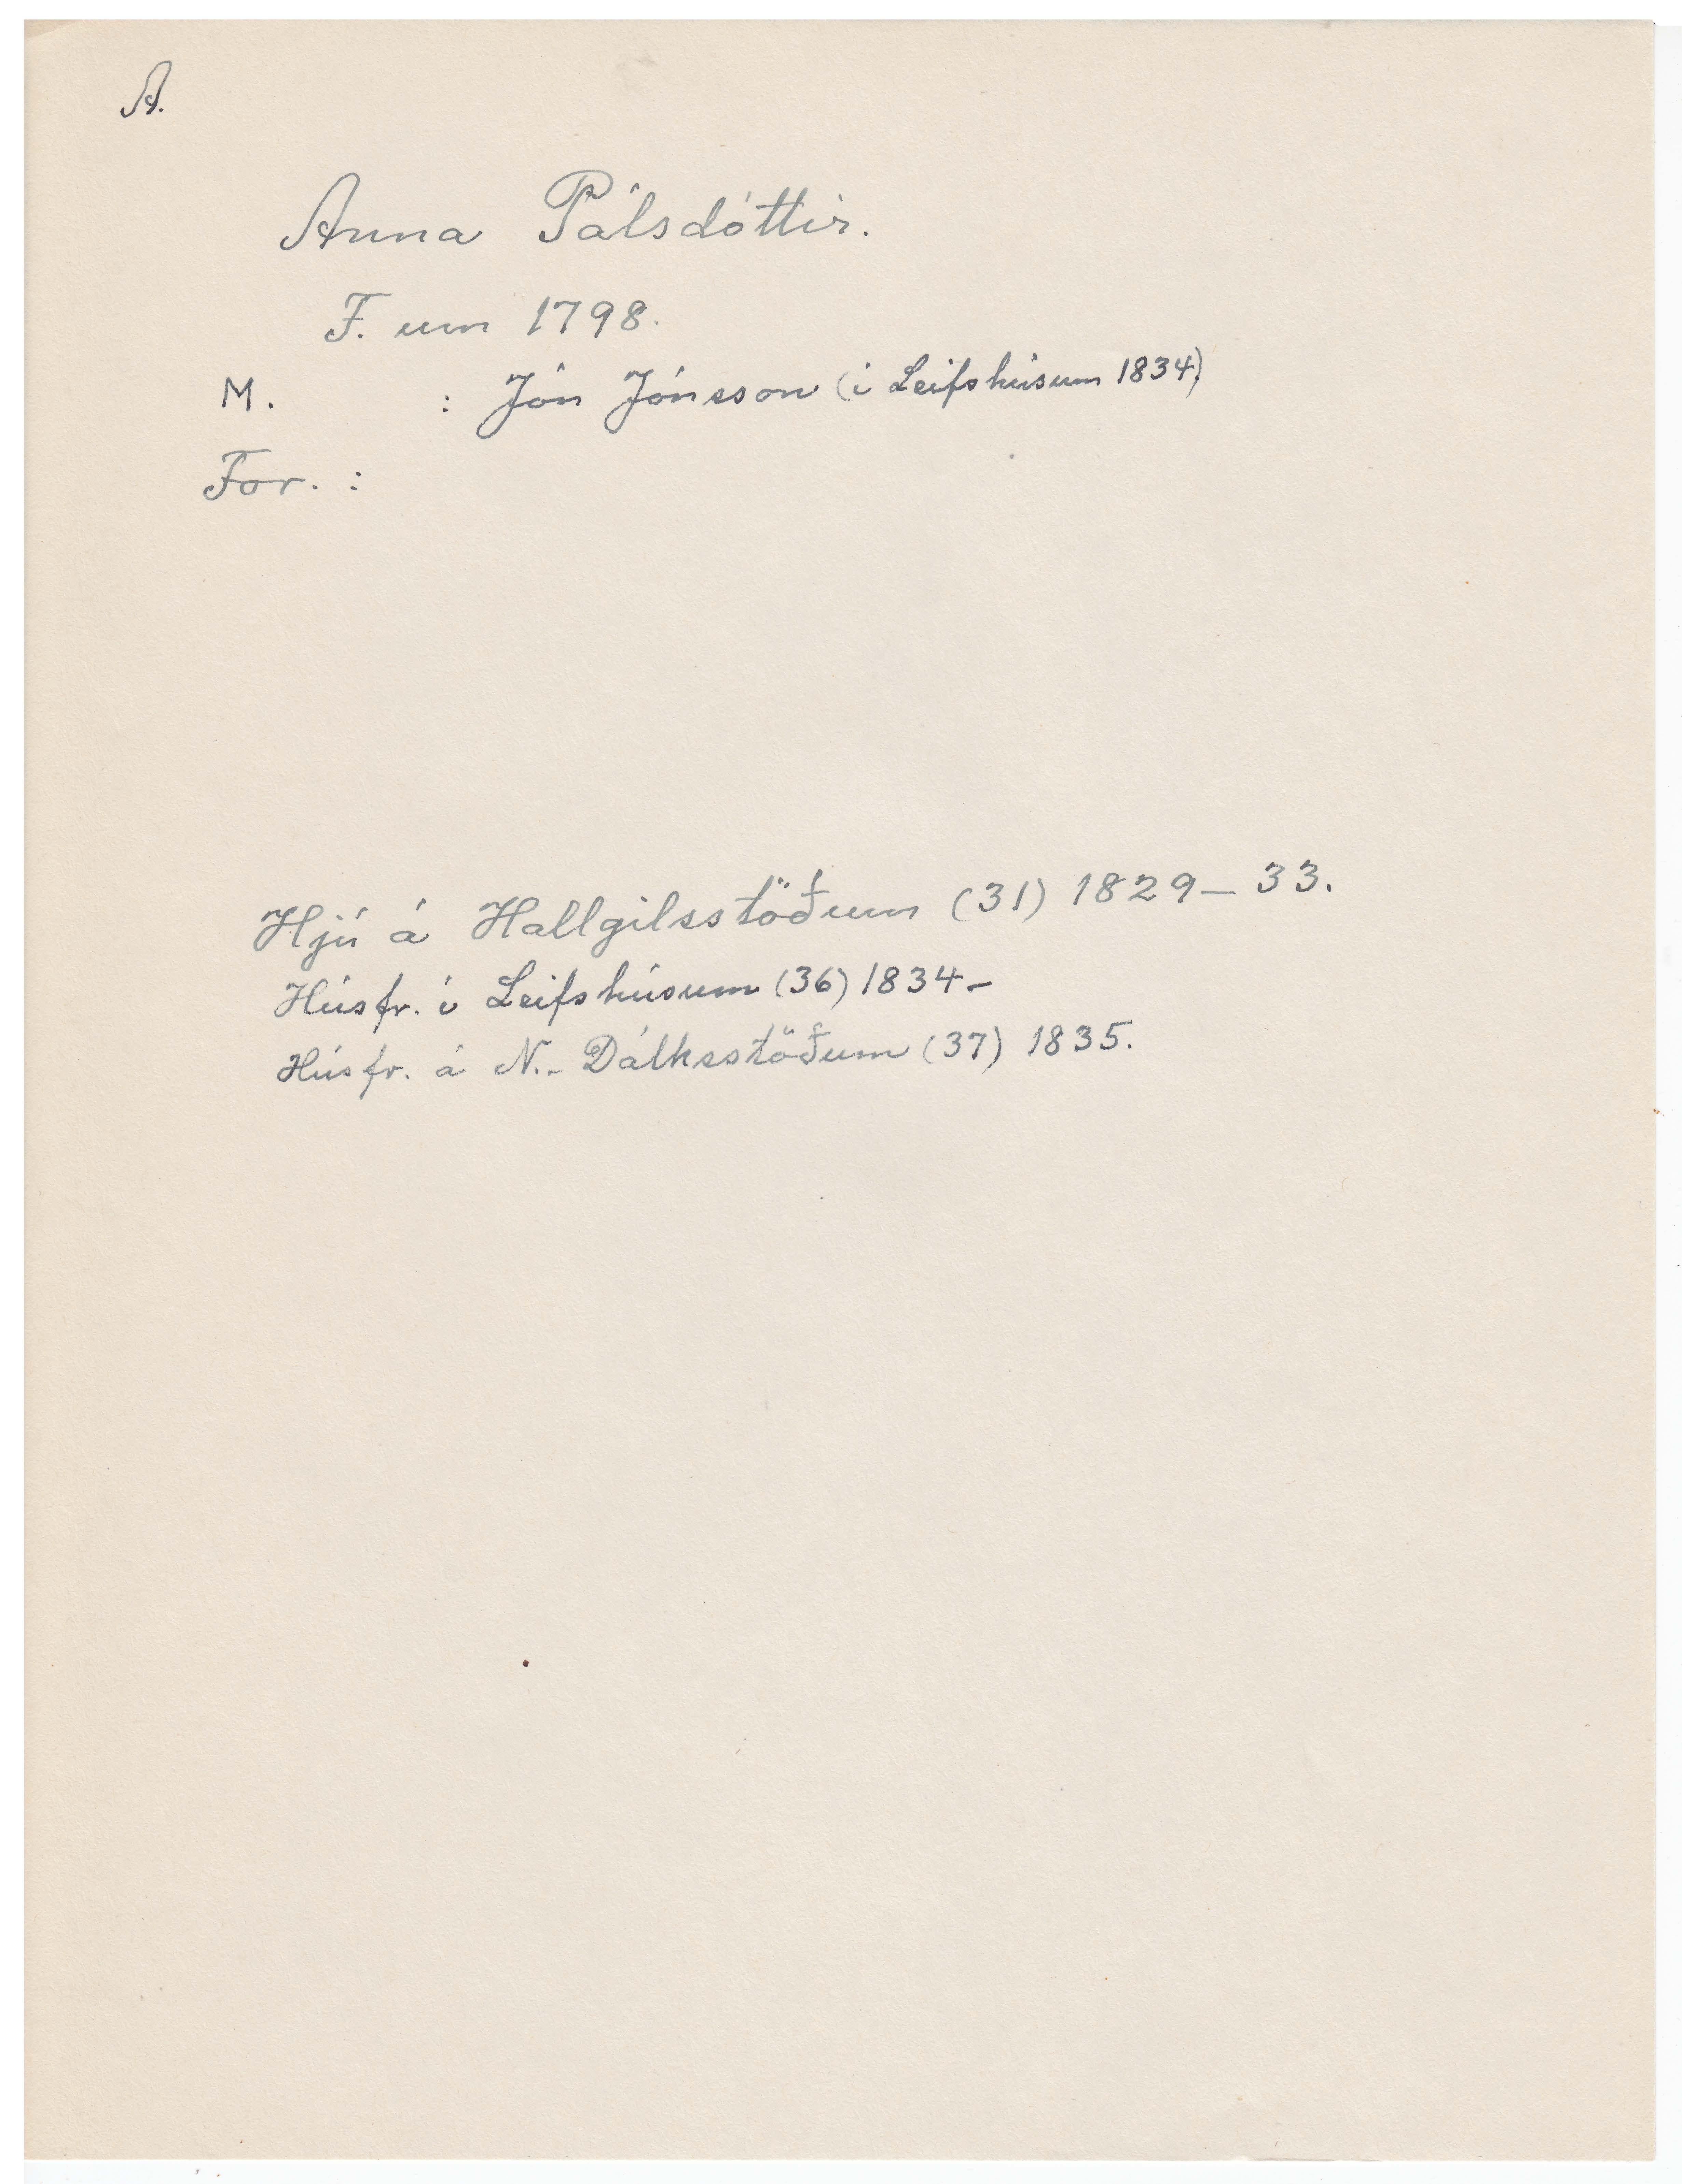 A.
Anna Pálsdóttir.
F. um 1798.
M. : Jón Jónsson (í Leifshúsum 1834)
For. :
Hjú á Hallgilsstöðum (31) 1829 – 33.
Húsfr. í Leifshúsum (36) 1834 –
Húsfr. á N.- Dálksstöðum (37) 1835.